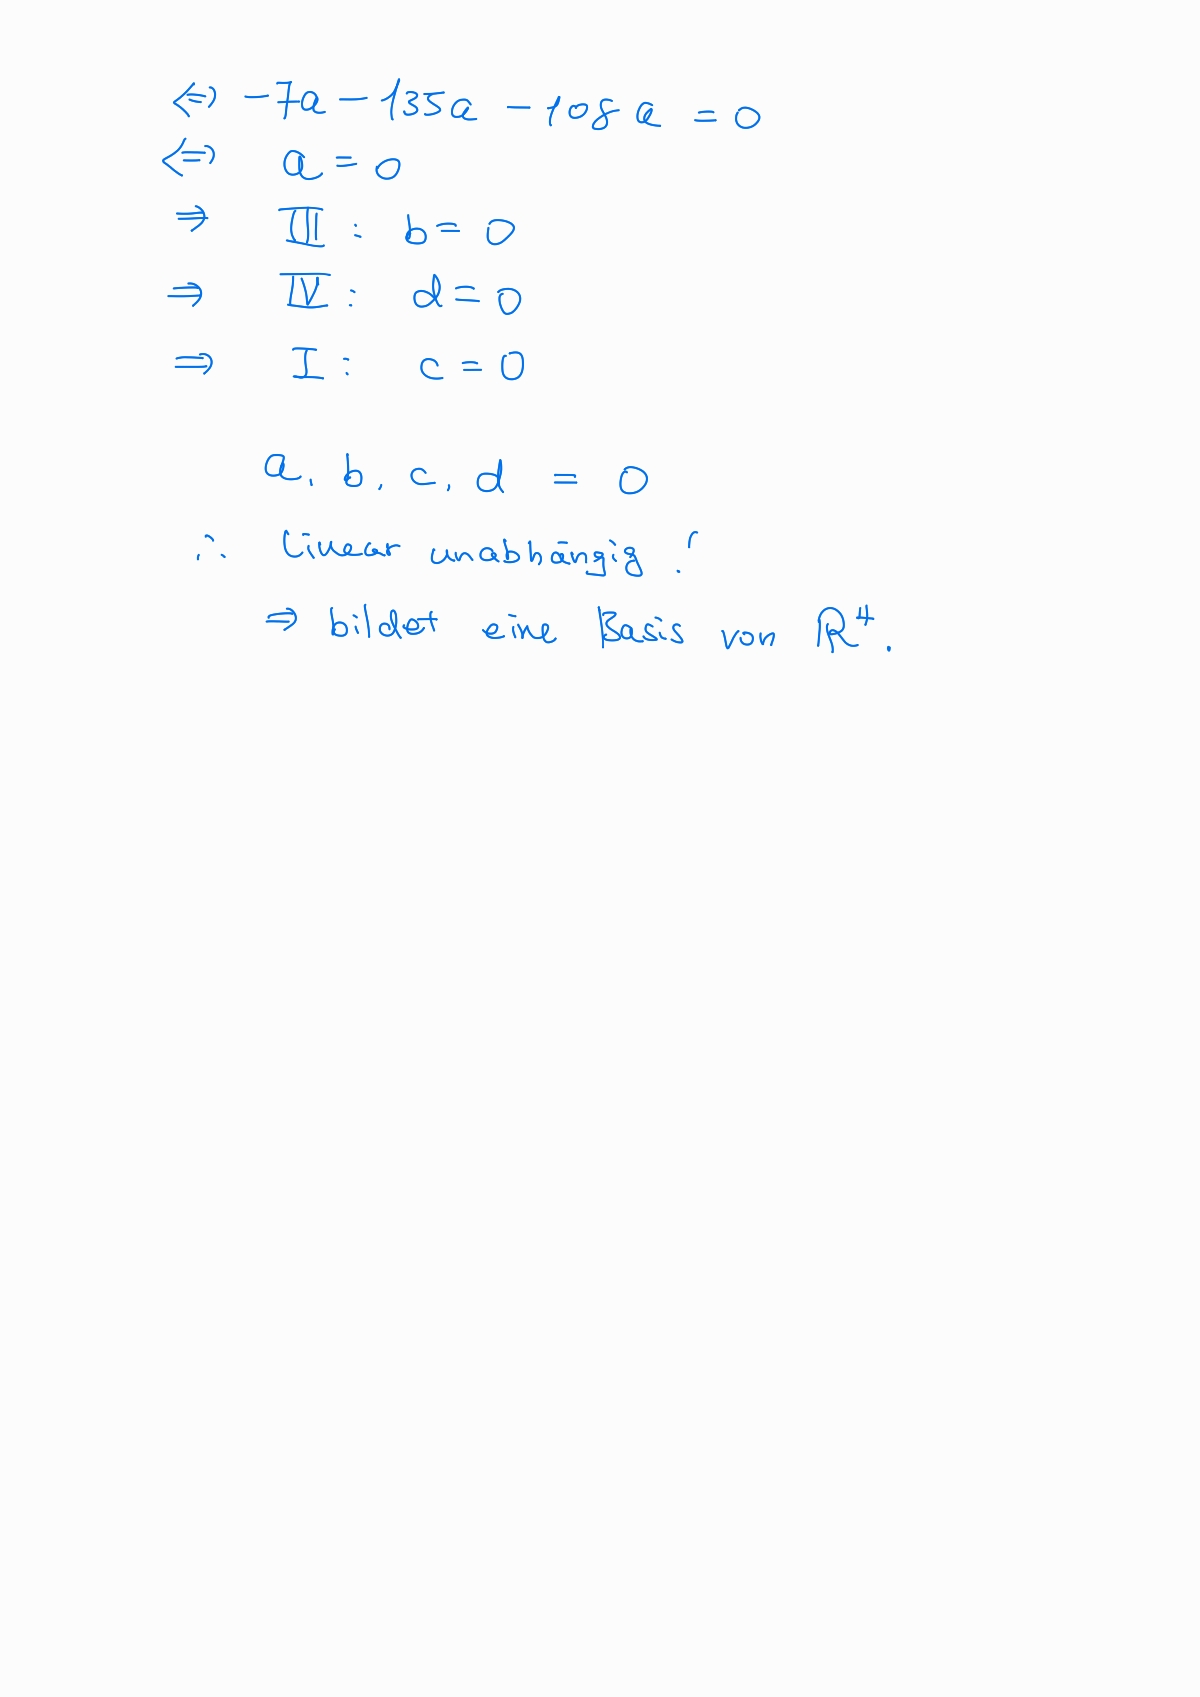 ⇔ -7a - 135a - 108a = 0
⇔ a = 0
⇒ III : b = 0
⇒ IV : d = 0
⇒ I : c = 0
a, b, c, d = 0
∴ linear unabhängig !
⇒ bildet eine Basis von ℝ⁴.